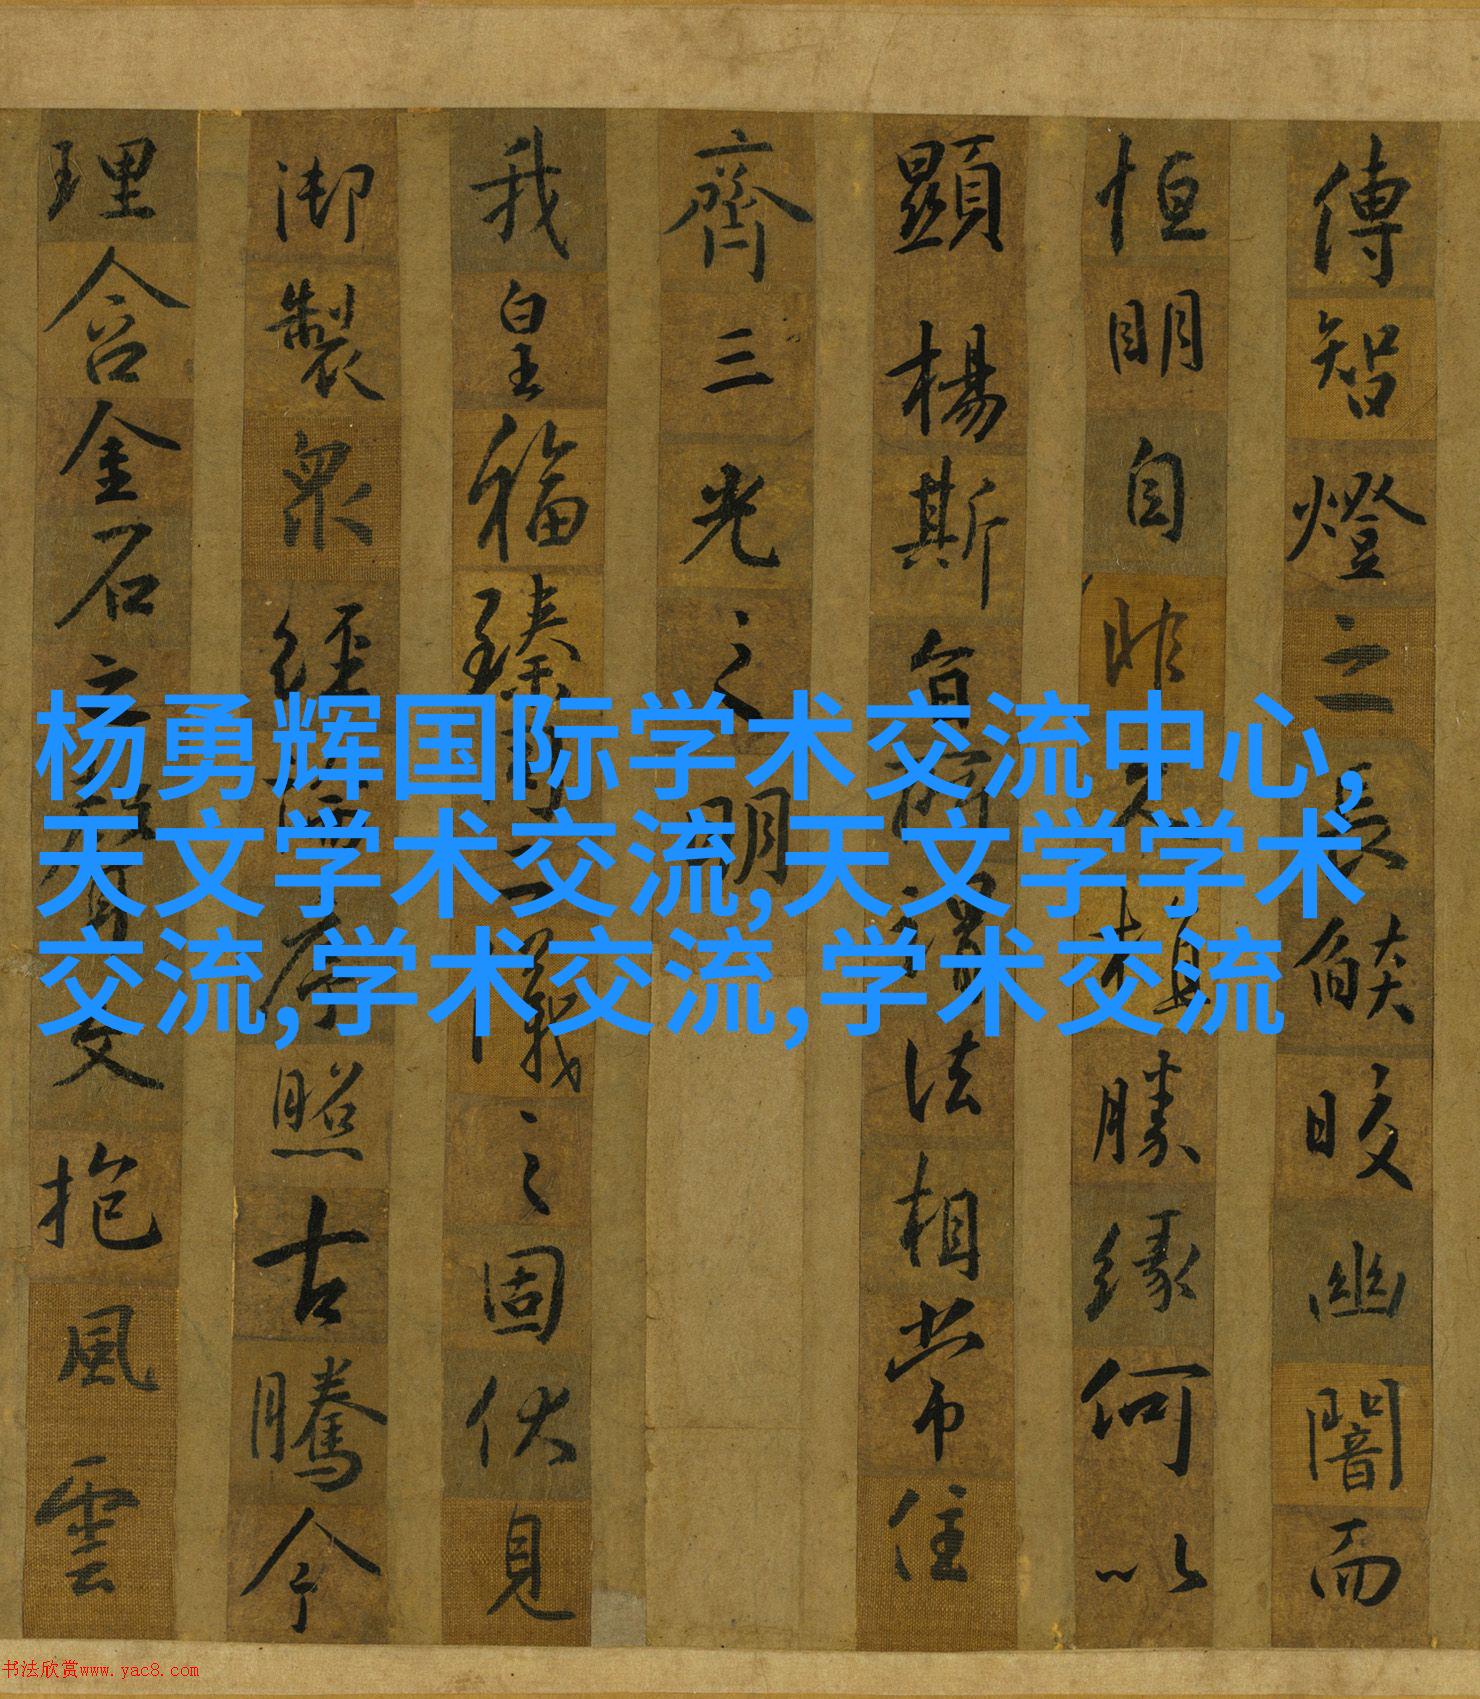 傳智燈之長燄皎幽闇而
恒明自非㒵積勝緣何以
顯揚斯旨所謂法相常住
齊三光之明
我皇福臻同二儀之固伏見
御製眾經論序照古騰今
理含金石之聲文抱風雲
杨勇辉国际学术交流中心,
天文学术交流,天文学学术
交流,学术交流,学术交流
书法欣赏www.yac8.com